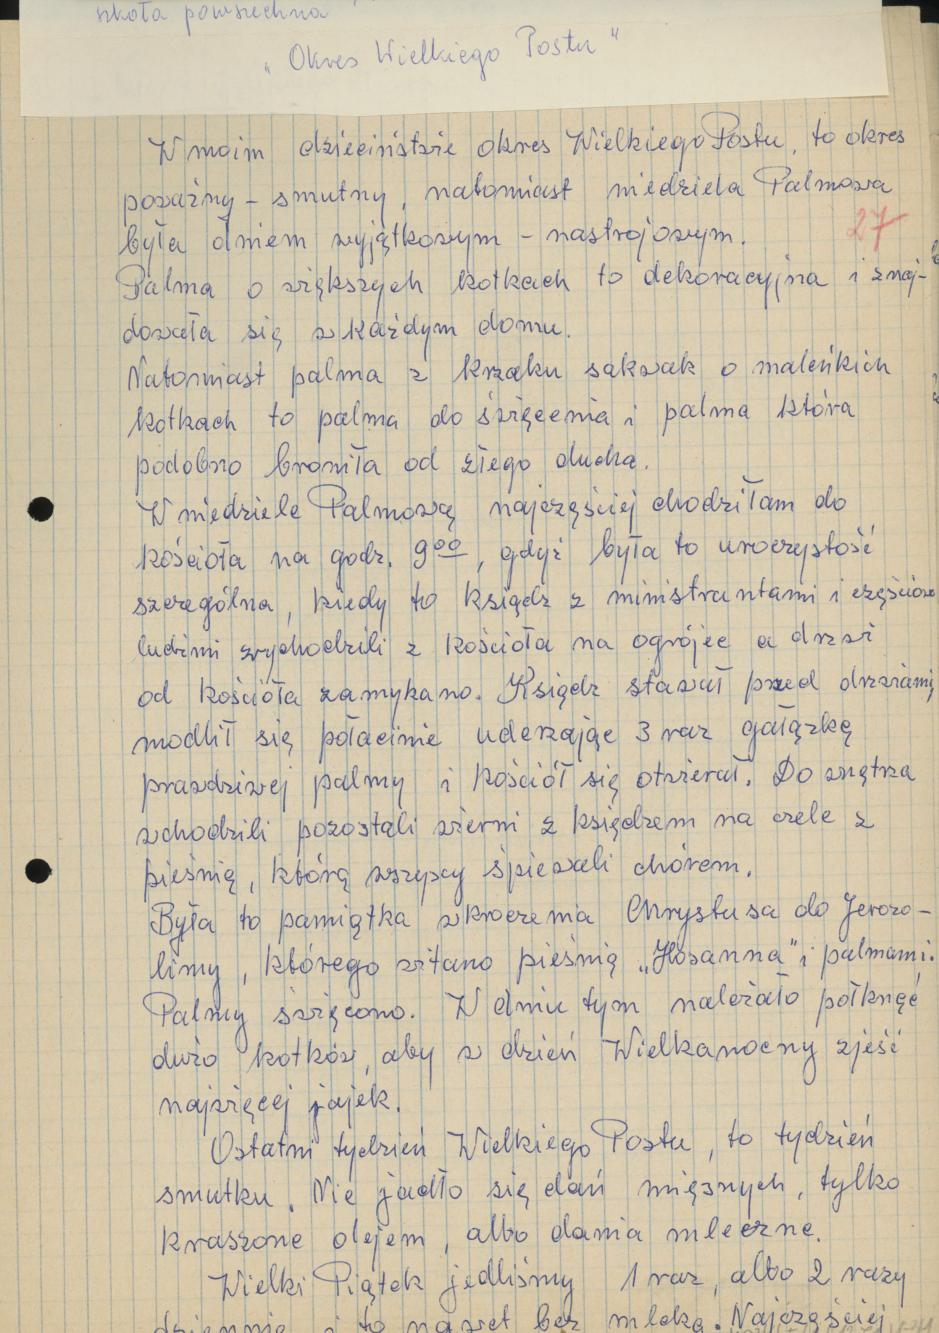 szkoła powszechna
„Okres Wielkiego Postu"
W moim dzieciństwie okres Wielkiego Postu, to okres
poważny - smutny, natomiast niedziela Palmowa
była dniem wyjątkowym - nastrojowym.
27
Palma o większych kotkach to dekoracyjna i znaj-
dowała się w każdym domu.
Natomiast palma z krzaku sakwak o maleńkich
kotkach to palma do święcenia i palma która
podobno broniła od złego ducha.
W niedziele Palmową najczęściej chodziłam do
kościoła na godz. 9⁰⁰, gdyż była to uroczystość
szczególna, kiedy to ksiądz z ministrantami i częściowo
ludźmi wychodzili z kościoła na ogrójec a drzwi
od kościoła zamykano. Ksiądz stawał przed drzwiami,
modlił się połacinie uderzając 3 raz gałązką
prawdziwej palmy i kościół się otwierał. Do wnętrza
wchodzili pozostali wierni z księdzem na czele z
pieśnią, którą wszyscy śpiewali chórem.
Była to pamiątka wkroczenia Chrystusa do Jerozo-
limy, którego witano pieśnią „Hosanna" i palmami.
Palmy święcono. W dniu tym należało połknąć
dużo kotków, aby w dzień Wielkanocny zjeść
najwięcej jajek.
Ostatni tydzień Wielkiego Postu, to tydzień
smutku. Nie jadło się dań mięsnych, tylko
kraszone olejem, albo dania mleczne.
Wielki Piątek jedliśmy 1 raz, albo 2 razy
dziennie i to nawet bez mleka. Najczęściej